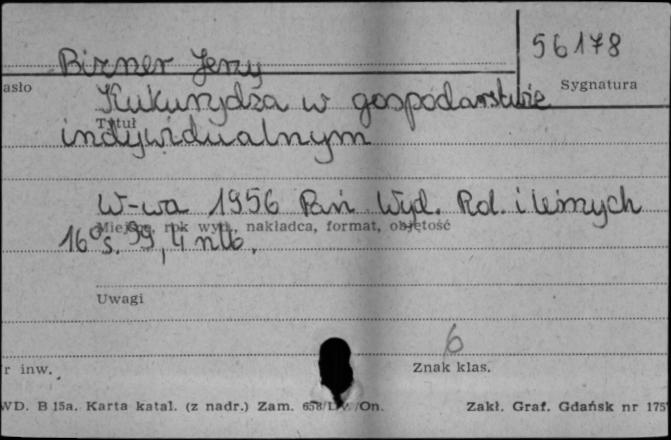 56178
Birner Jerzy
asło
Sygnatura
Kukurydza w gospodarstwie
Tytuł
indywidualnym
W-wa 1956 Pań Wyd. Rol. i leśnych
Miejsce, rok wyd., nakładca, format, objętość
16° s. 99, 4 nlb.
Uwagi
6
r inw.
Znak klas.
WD. B 15a. Karta katal. (z nadr.) Zam. /On.
Zakł. Graf. Gdańsk nr 175